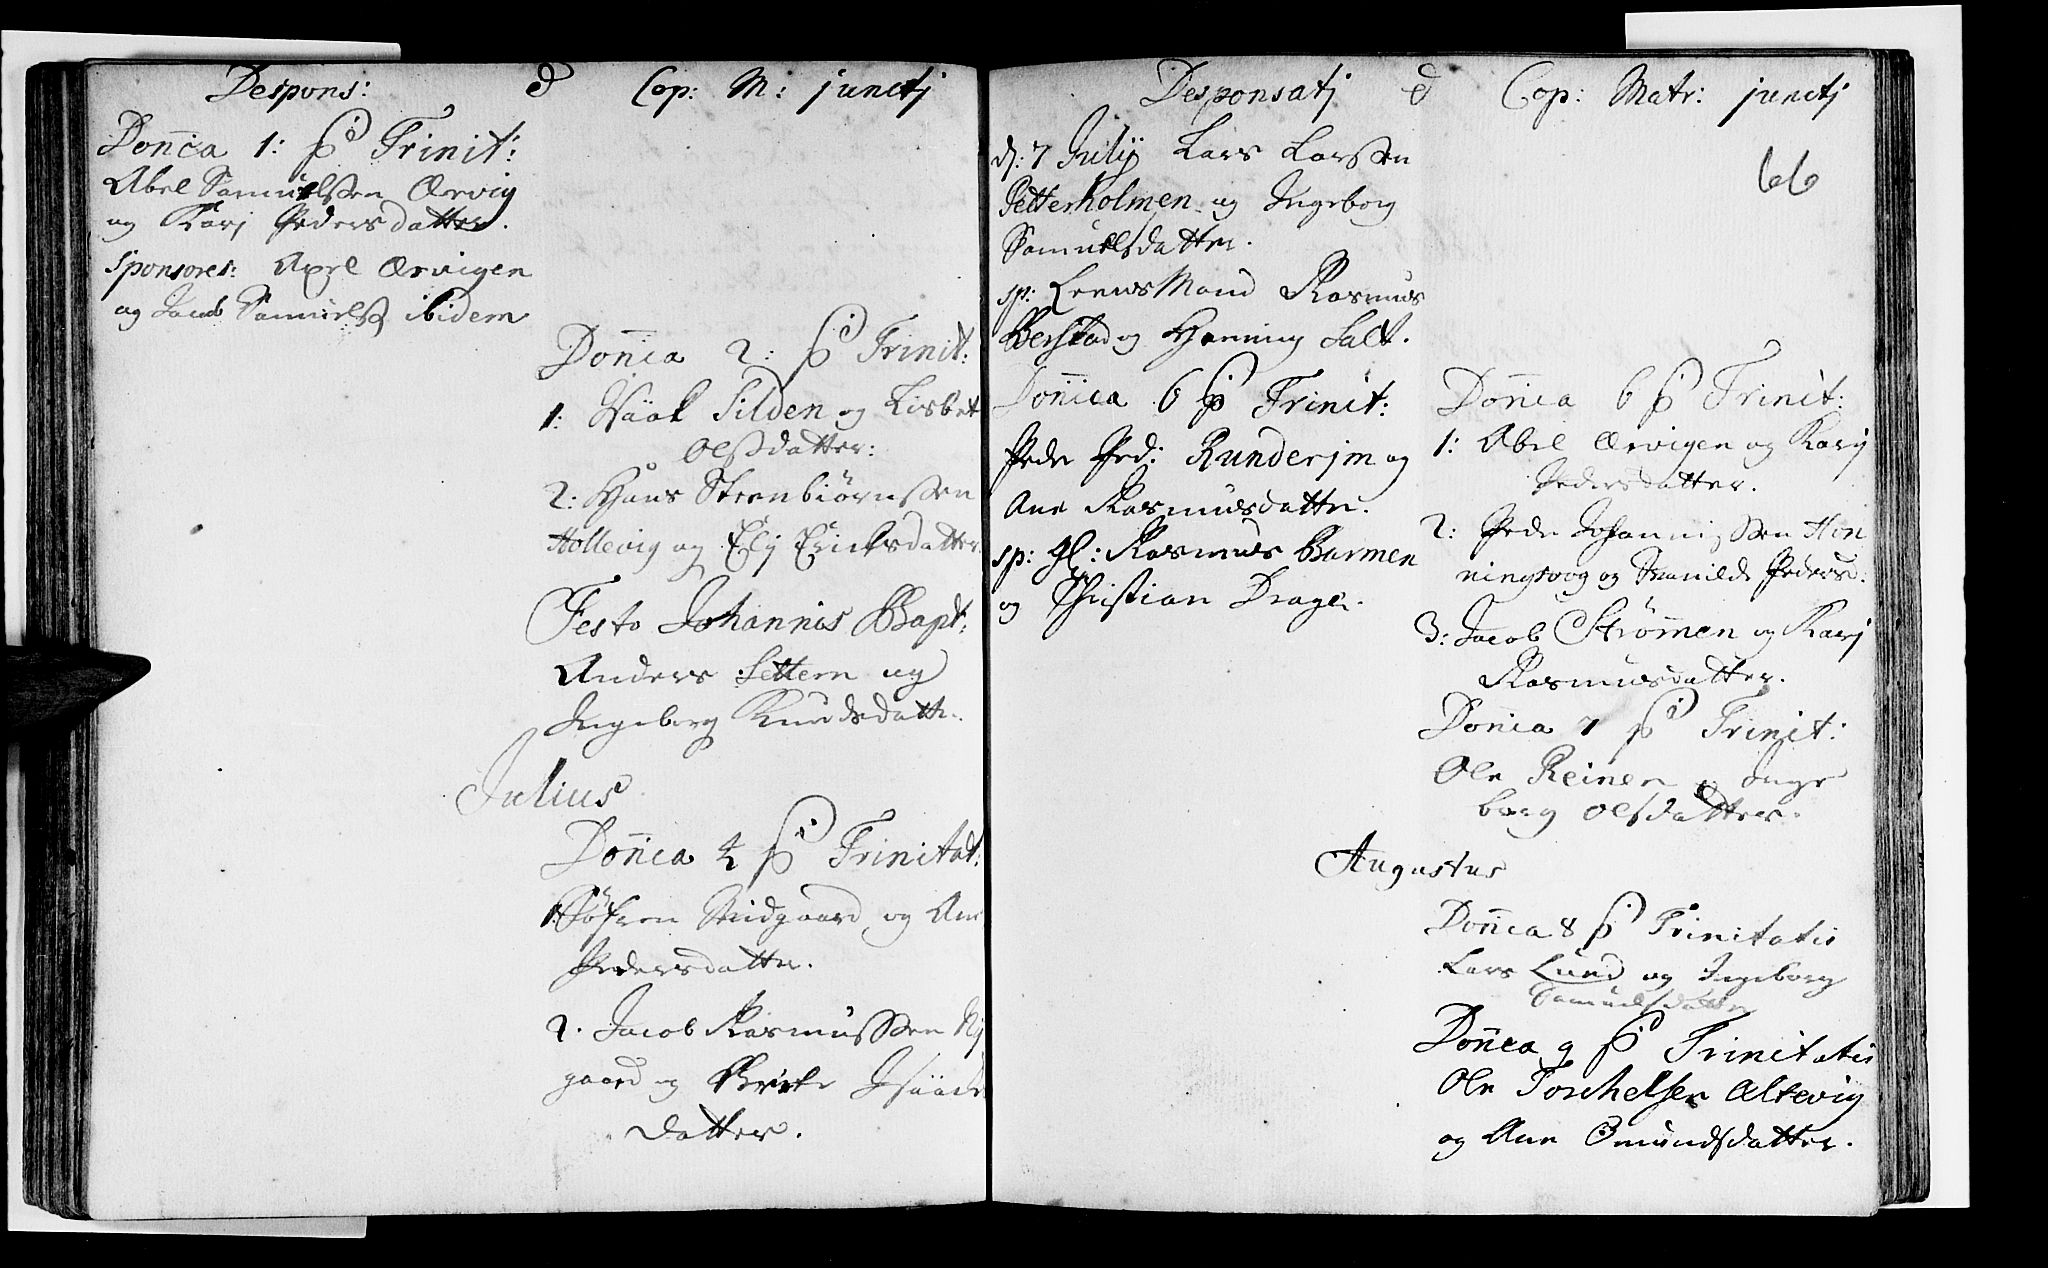 Despons: & Cop: M: junctj
Don̄ica 1: p Trinit:
Abel Samuelssen Ærvig
og Karj Pedersdatter.
sponsores: Axel Ærvigen
og Jacob Samuelss ibidem
Don̄ica 2: p Trinit:
1: Silden og Lisbet
Olsdatter:
2: Hans Steenbiørnssen
Hollevig og Elj Ericksdatter
Festo Johannis Bapt:
Anders Settem og
Ingeborg Knudsdatter.
Julius
Don̄ica 4 p Trinitat:
1: Søfren Midgaard og Ane
Pedersdatter.
2. Jacob Rasmussen Nÿ
gaard og Brite Isaachs
datter.
Desponsatj & Cop: Matr: junctj
66
d: 7 Julij Lars Larssen
Petterholmen og Ingeborg
Samuelsdatter.
sp: Leens Mand Rasmus
Berstad og Henning Salt.
Don̄ica 6 p Trinit:
Peder Ped: Runderjm og
Ane Rasmusdatter.
sp: gl: Rasmus Barmen
og Christian Drage.
Don̄ica 6 p Trinit:
1: Abel Ærvigen og Karj
Pedersdatter.
2: Peder Johannissen Hon
ningsvog og Pedersd:
3: Jacob Strøm̄en og Karj
Rasmusdatter.
Don̄ica 7 p Trinit:
Ole Reinen og Inge
borg Olsdatter.
Augustus
Don̄ica 8 p Trinitatis
Lars Lund og Ingeborg
Samuelsdatter
Don̄ica 9 p Trinitatis
Ole Torchelsen Altevig
og Ane Omundsdatter.